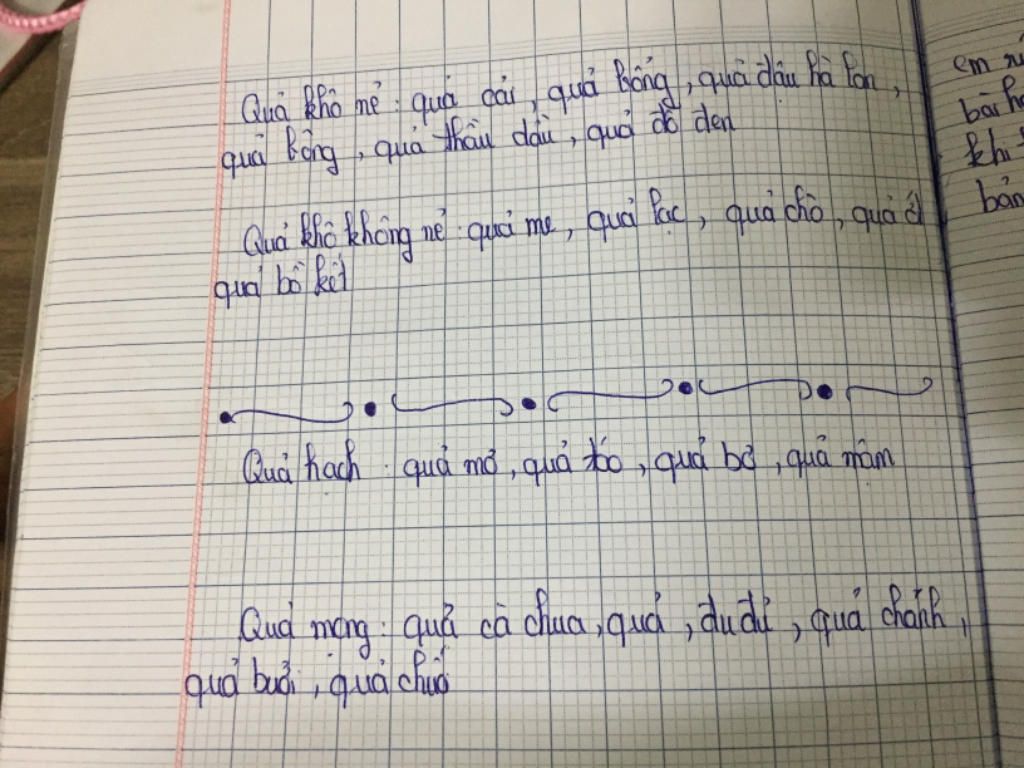 Quả khô nẻ: quả cải, quả bông, quả đậu hà lan,
quả bông, quả thầu dầu, quả đỗ đen
Quả khô không nẻ: quả me, quả lạc, quả chò,
quả bồ kết
Quả hạch: quả mơ, quả táo, quả bơ, quả mâm
Quả mọng: quả cà chua, quả, đu đủ, quả chanh,
quả bưởi, quả chuối
em
bài
khi
bản